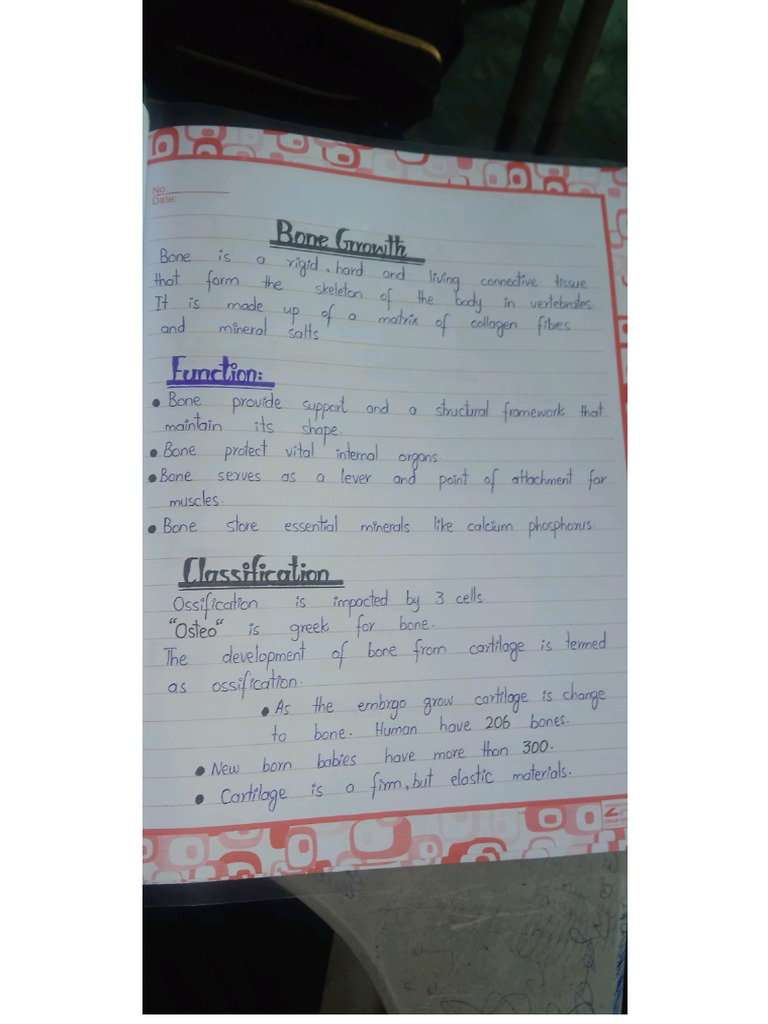 No:
Date:
Bone Growth
Bone is a rigid, hard and living connective tissue
that form the skeleton of the body in vertebrates
It is made up of a matrix of collagen fibies
and mineral salts
Function:
• Bone provide support and a structural framework that
maintain its shape.
• Bone protect vital internal organs
• Bone serves as a lever and point of attachment for
muscles.
• Bone store essential minerals like calcium phosphorus.
Classification
Ossification is impacted by 3 cells
"Osteo" is greek for bone.
The development of bone from cartilage is termed
as ossification.
• As the embrgo grow cartilage is change
to bone. Human have 206 bones.
• New born babies have more than 300.
• Cartilage is a firm, but elastic materials.